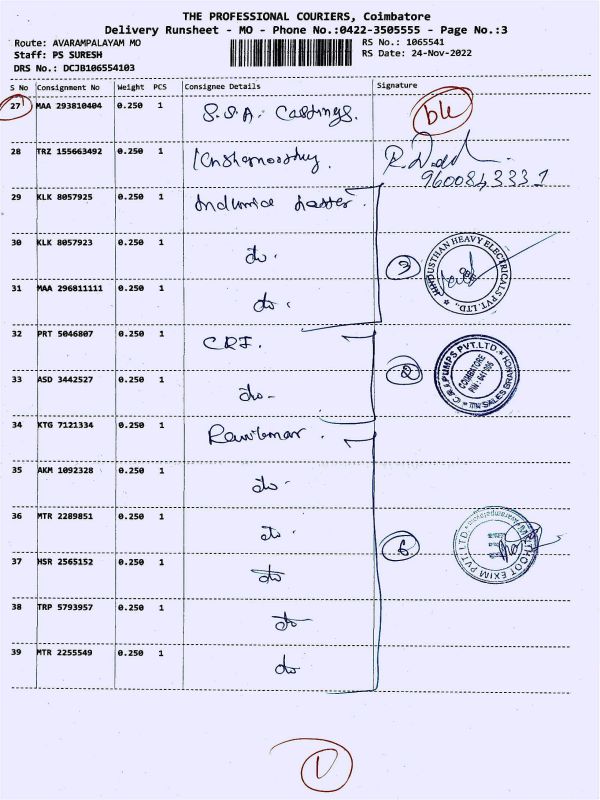 THE PROFESSIONAL COURIERS, Coimbatore
Delivery Runsheet - MO - Phone No.:0422-3505555 - Page No.:3
Route: AVARAMPALAYAM MO
RS No.: 1065541
Staff: PS SURESH
RS Date: 24-Nov-2022
DRS No.: DCJB106554103
S No Consignment No Weight PCS Consignee Details Signature
27 MAA 293810404 0.250 1 S.S.A. Castings.
28 TRZ 155663492 0.250 1
9600843331
29 KLK 8057925 0.250 1
30 KLK 8057923 0.250 1 do.
3 HINDUSTHAN HEAVY ELECTRICALS PVT.LTD.
31 MAA 296811111 0.250 1 do.
32 PRT 5046807 0.250 1 C.R.I.
2 C.R.I PUMPS PVT.LTD COIMBATORE SALES BRANCH
33 ASD 3442527 0.250 1 do-
34 KTG 7121334 0.250 1
35 AKM 1092328 0.250 1 do.
36 MTR 2289851 0.250 1 do.
6 EXIM PVT.LTD
37 HSR 2565152 0.250 1 do
38 TRP 5793957 0.250 1 do
39 MTR 2255549 0.250 1 do
1